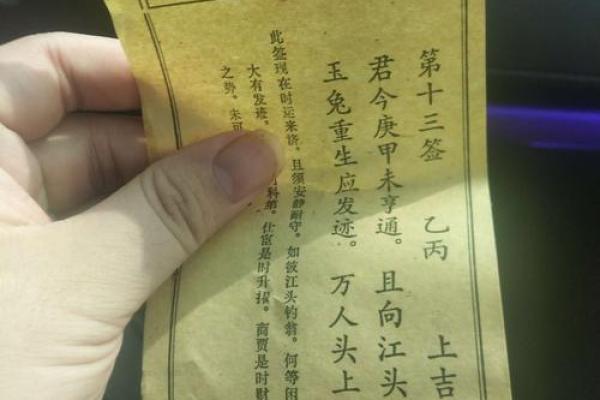 第十三签 乙丙 上吉
君今庚甲未亨通。且向江头
玉兔重生应发迹。万人头上
此签现在时运未济。且须安静耐守。如彼江头钓翁。何等闲
大有发迹。科第。仕宦是时升擢。商贾是时财
之势。未可